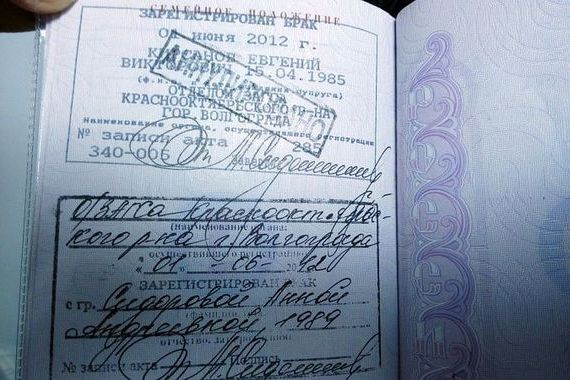 СЕМЕЙНОЕ ПОЛОЖЕНИЕ
ЗАРЕГИСТРИРОВАН БРАК
01 ИЮНЯ 2012 г.
ЕВГЕНИЙ
15.04.1985
ОТДЕЛОМ ЗАГСА
КРАСНООКТЯБРЬСКОГО Р-НА
ГОР. ВОЛГОГРАДА
Наименование органа, осуществившего регистрации
№ записи акта 285
340-006
О/ЗАГСа Краснооктябрьс-
кого р-на г. Волгограда
(наименование органа,
осуществившего регистрацию)
"01" 06 2012
ЗАРЕГИСТРИРОВАН БРАК
с гр. Сидоровой Анной
Андреевной, 1989
отчество, дата рождения
№ записи акта Подпись